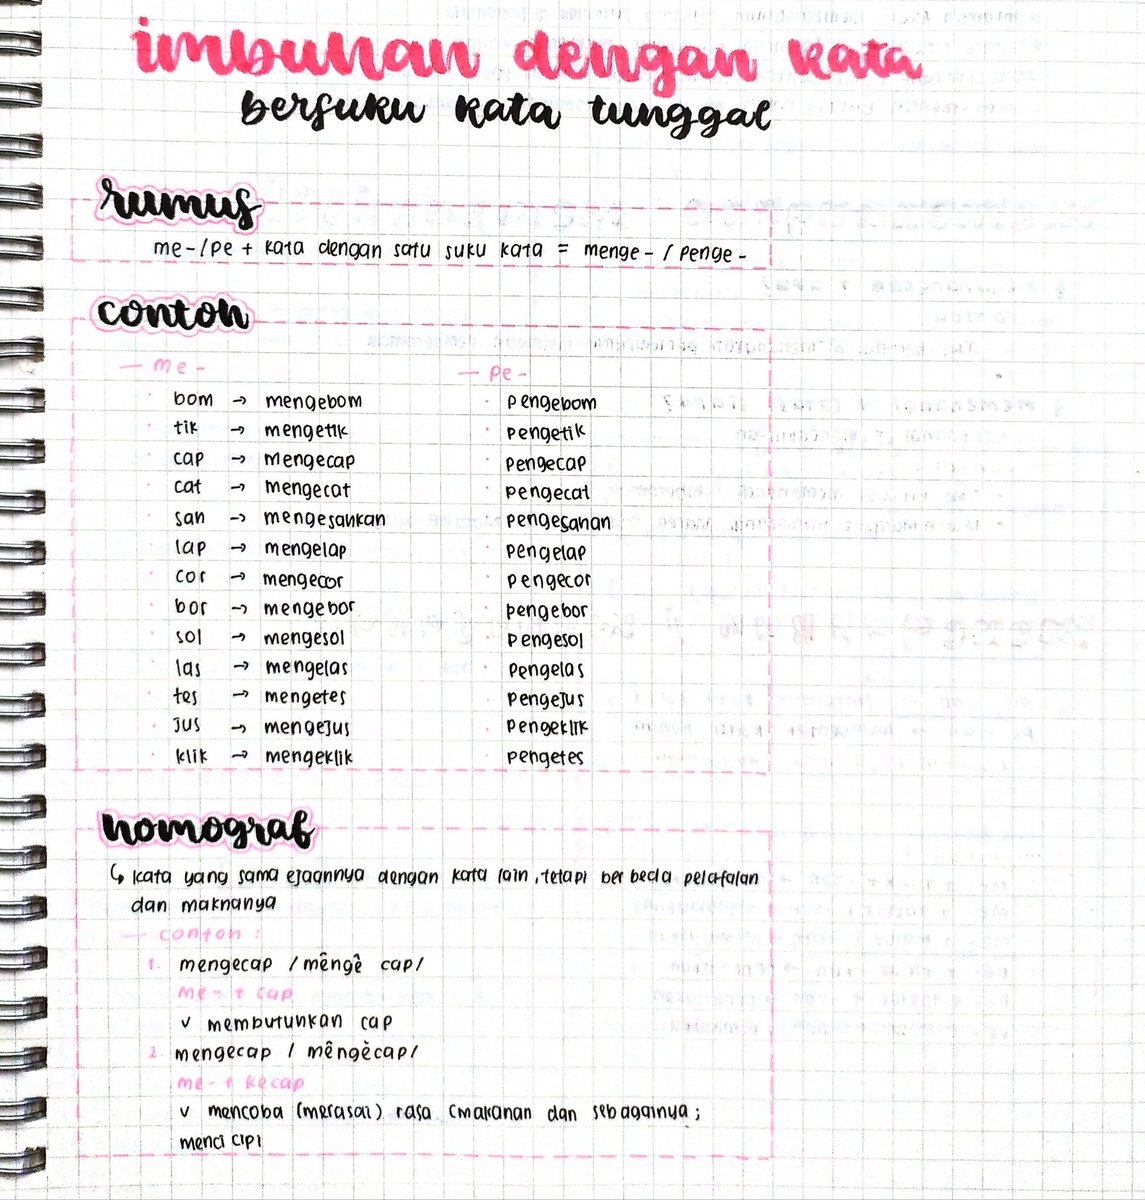 imbuhan dengan kata
bersuku kata tunggal
rumus
me-/pe + kata dengan satu suku kata = menge- / penge-
contoh
— me - — pe -
bom → mengebom · pengebom
tik → mengetik · pengetik
cap → mengecap · pengecap
cat → mengecat · pengecat
sah → mengesahkan · pengesahan
lap → mengelap · pengelap
cor → mengecor · pengecor
bor → mengebor · pengebor
sol → mengesol · pengesol
las → mengelas · pengelas
tes → mengetes · pengejus
· jus → mengejus · pengeklik
· klik → mengeklik · pengetes
homograf
↳ kata yang sama ejaannya dengan kata lain, tetapi berbeda pelafalan
dan maknanya
— contoh :
1. mengecap /mêngê cap/
me- + cap
v membutuhkan cap
2. mengecap / mêngècap/
me- + kecap
v mencoba (merasai) rasa (makanan dan sebagainya;
mencicipi